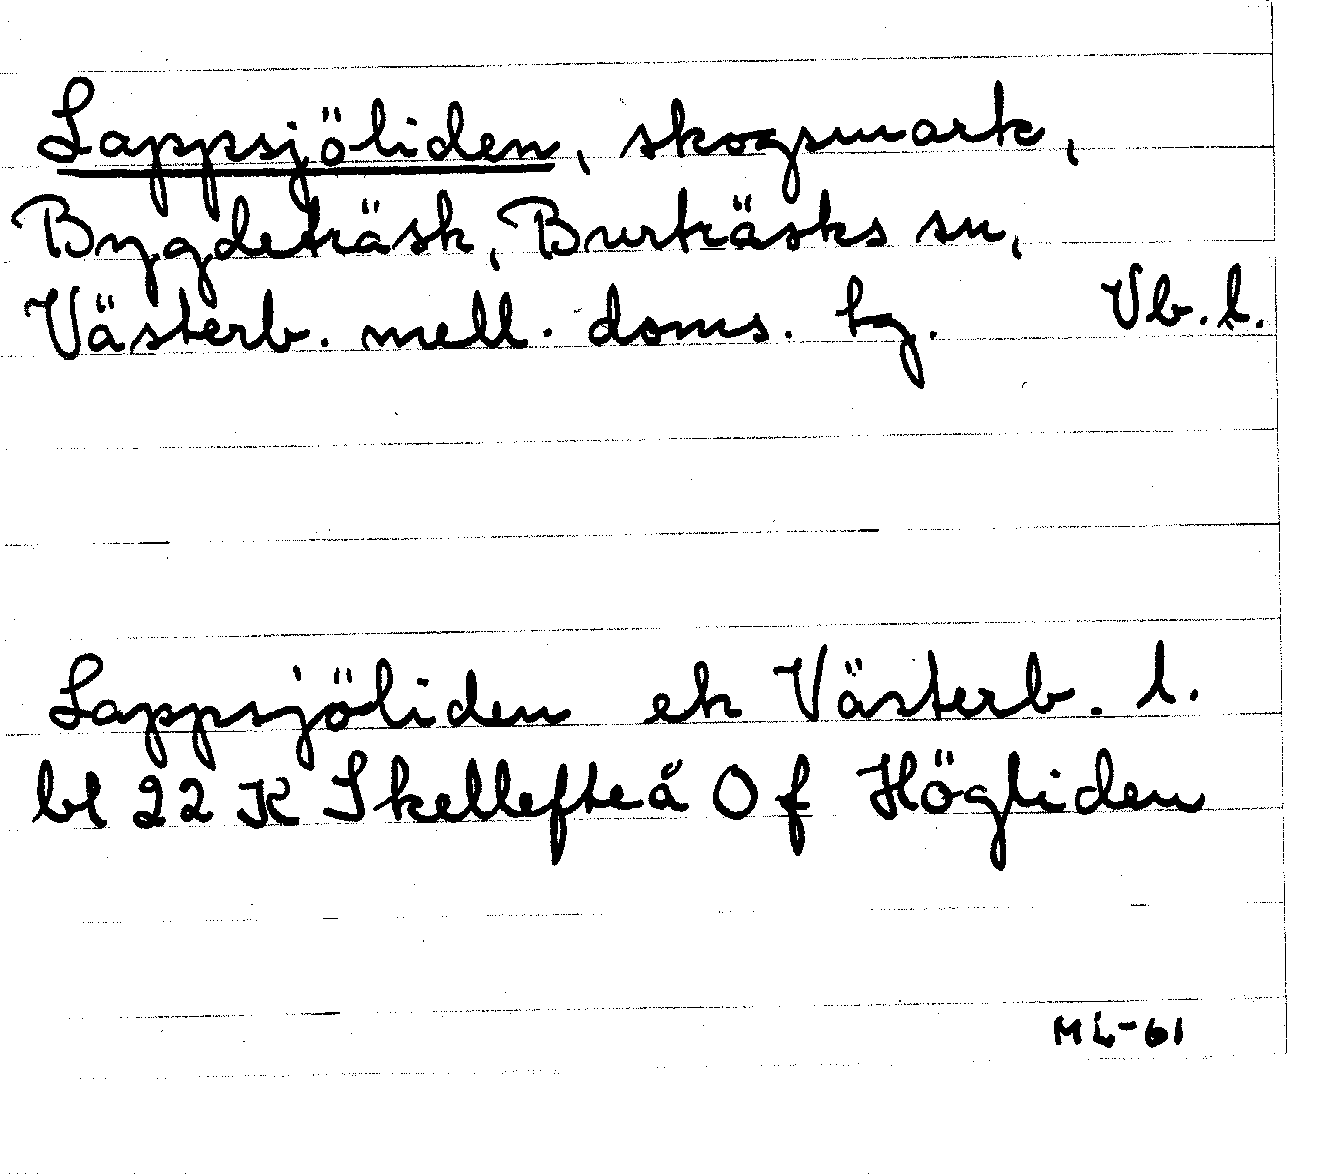 Lappsjöliden, skogsmark,
Bygdeträsk, Burträsks sn,
Västerb. mell. doms. tg. Vb. l.
Lappsjöliden ek Västerb. l.
bl 22 K Skellefteå O f Högliden
ML-61